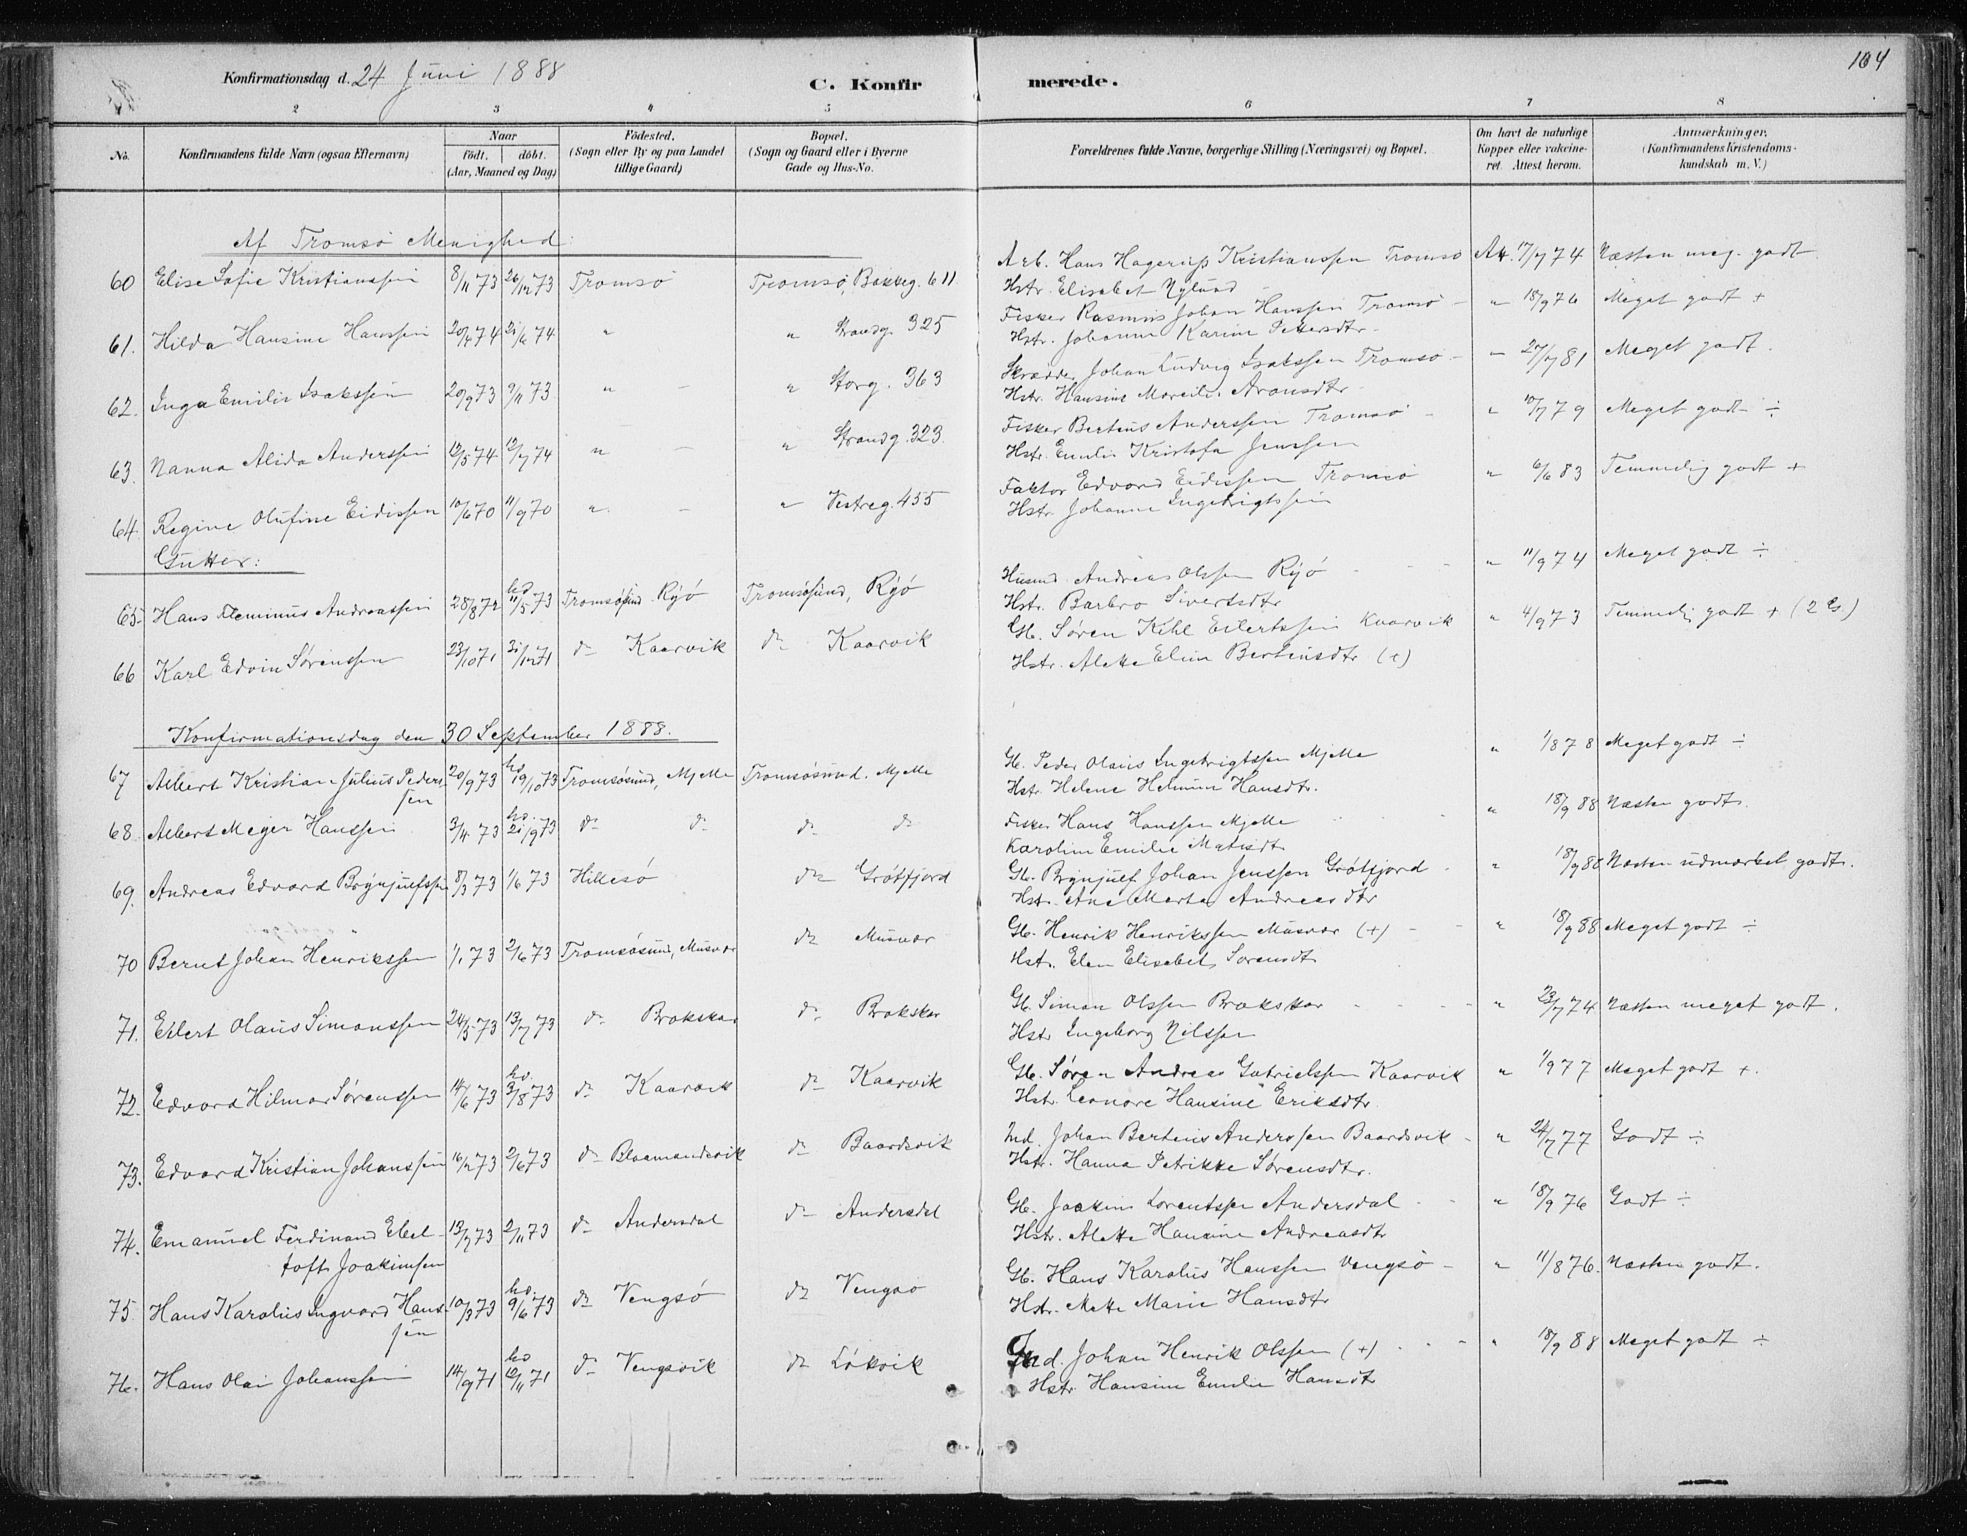 104
Konfirmationsdag d. 24 Juni 1888
C. Konfirmerede.
2 3 4 5 6 7 8
No. Konfirmandens fulde Navn (ogsaa Efternavn) Naar født. døbt. (Aar, Maaned og Dag) Fødested. (Sogn eller By og paa Landet tillige Gaard) Bopæl. (Sogn og Gaard eller i Byerne Gade og Hus-No. Forældrenes fulde Navne, borgerlige Stilling (Næringsvei) og Bopæl. Om havt de naturlige Kopper eller vakcineret. Attest herom. Anmærkninger. (Konfirmandens Kristendomskundskab m. V.)
Af Tromsø Menighed:
60 Elise Sofie Kristianssen 8/11 73 26/12 73 Tromsø Tromsø, Bakkeg. 611 Arb. Hans Hagerup Kristianssen Tromsø At. 17/7 74 Næsten meg. godt
Hstr. Elisabet Nylund
61. Hilda Hansine Hanssen 20/4 74 21/6 74 " " Strandg. 325 Fisker Rasmus Johan Hanssen Tromsø - " 18/9 76 Meget godt +
Hstr. Johanna Karine Petersdtr.
62. Inga Emilie Isakssen 20/9 73 9/11 73 " - " Storg. 363 Skrædder Johan Ludvig Isakssen Tromsø - " 27/7 81 Meget godt.
Hstr. Hansine Aronsdtr
63. Nanna Alida Anderssen 12/5 74 12/7 74 " - " Strandg. 323. Fisker Berteus Anderssen Tromsø - " 10/7 79 Meget godt ÷
Hstr. Emilie Kristofa Jenssen
64. Regine Olufine Eidissen 10/6 70 11/9 70 " - " Vestreg. 455 Faktor Edvard Eidissen Tromsø " 6/6 83 Temmelig godt +
Hstr. Johanne Ingebrigtssen
Gutter:
65. Hans Andreassen 28/8 72 hd 11/5 73 Tromsøsund Ryø Tromsøsund, Ryø Husmd. Andreas Olssen Ryø - - - " 11/9 74 Meget godt ÷
Hstr. Barbro Sivertsdtr
66 Karl Edvin Sørenssen 23/10 71 21/12 71 do Kaarvik do Kaarvik Gb. Søren Kihl Eilertssen Kaarvik " 4/9 73 Temmelig godt + (2 G.)
Hstr. Alette Elen Berteusdtr (+)
Konfirmationsdag den 30 September 1888.
67 Albert Kristian Julius Pederssen 20/9 73 hd 19/10 73 Tromsøsund, Mjelle Tromsøsund. Mjelle Gb. Peder Olaus Ingebrigtssen Mjelle " 1/8 78 Meget godt ÷
Hstr. Helene Helmine Hansdtr.
68. Albert Meyer Hanssen 3/4 73 hd. 21/9 73 do do do do Fisker Hans Hanssen Mjelle " 18/9 88 Næsten godt.
Karoline Emilie Matisdtr
69. Andreas Edvard Brynjulfssen 8/3 73 1/6 73 Hillesø do Grøtfjord Gb. Brynjulf Johan Jenssen Grøtfjord - " 18/9 88 Næsten udmærket godt.
Hstr. Ane Marta Andreasdtr
70 Bernt Johan Henrikssen 1/1 73 2/6 73 Tromsøsund, Musvær do Musvær Gb. Henrik Henrikssen Musvær (+) - - " 18/9 88 Meget godt ÷
Hstr. Elen Elisabet Sørensdt
71. Eilert Olaus Simonssen 24/5 73 13/7 73 do Brokskar do Brokskar Gb. Simon Olssen Brokskar - - - " 23/7 74 Næsten meget godt.
Hstr Ingeborg Nilssen
72. Edvard Hilmar Sørenssen 14/6 73 hd. 3/8 73 do Kaarvik do Kaarvik Gb. Søren Andreas Gabrielssen Kaarvik " 1/9 77 Meget godt +.
Hstr. Leonore Hansine Eriksdtr.
73. Edvard Kristian Johanssen 16/2 73 2/6 73 do Blaamandsvik do Baardsvik Ind. Johan Berteus Anderssen Baardsvik - " 24/7 77 Godt ÷
Hstr. Hanna Petrikke Sørensdtr.
74. Emanuel Ferdinand Ebeltoft Joakimsen 13/7 73 2/11 73 do Andersdal do Andersdal Gb. Joakim Lorentssen Andersdal - - " 18/9 76 Godt ÷
Hstr. Alette Hansine Andreasdtr
75. Hans Karolius Ingvard Hanssen 10/3 73 hd. 9/6 73 do Vengsø do Vengsø Gb. Hans Karolus Hanssen Vengsø - " 11/8 76. Næsten godt.
Hstr. Mette Marie Hansdtr
76. Hans Olai Johanssen 14/9 71 hd 12/11 71 do Vengsvik do Løkvik Ind. Johan Henrik Olssen (+) - - - " 18/9 88 Meget godt ÷
Hstr. Hansine Emilie Hansdtr